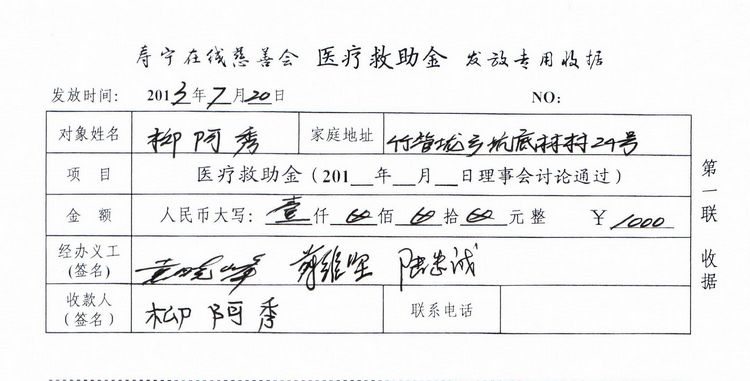 寿宁在线慈善会 医疗救助金 发放专用收据
发放时间: 2013年7月20日 NO:
对象姓名 柳阿秀 家庭地址 竹管垅乡坑底林村24号
项 目 医疗救助金(201__年__月__日理事会讨论通过)
金 额 人民币大写: 壹仟 佰 拾 元整 ¥1000
经办义工
(签名)
收款人
(签名) 柳阿秀 联系电话
第一联 收据